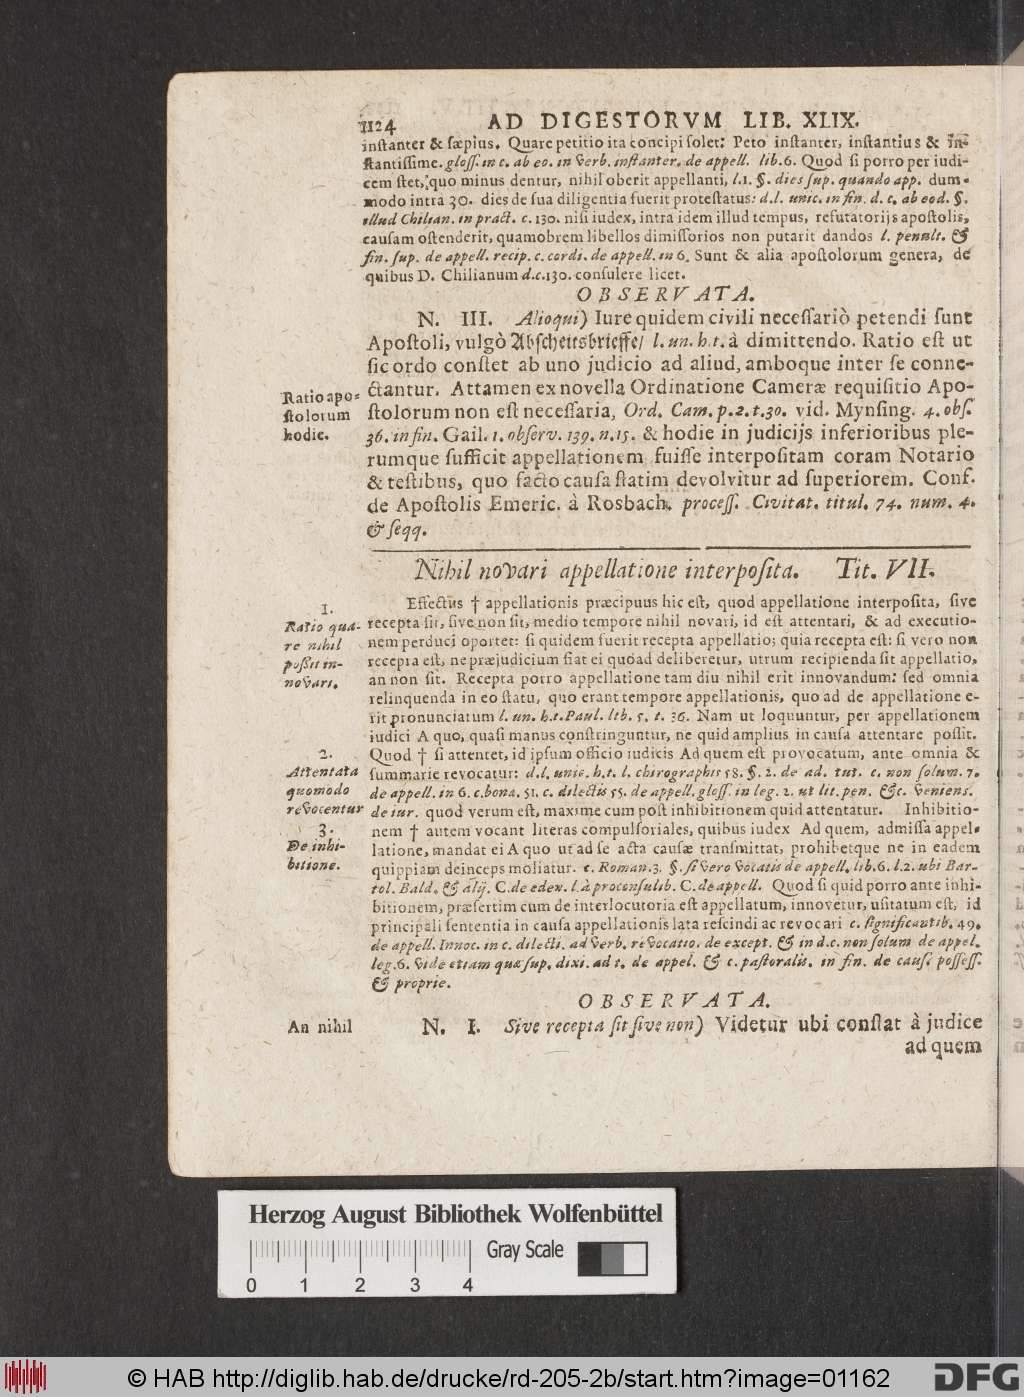 1124 AD DIGESTORVM LIB. XLIX.
instanter & sæpius. Quare petitio ita concipi solet: Peto instanter, instantius & in-
stantissime. gloss. in c. ab eo. in verb. instanter. de appell. lib. 6. Quod si porro per iudi-
cem stet, quo minus dentur, nihil oberit appellanti, l. 1. §. dies sup. quando app. dum-
modo intra 30. dies de sua diligentia fuerit protestatus: d. l. unic. in fin. d. c. ab eod. §.
illud Chilian. in pract. c. 130. nisi iudex, intra idem illud tempus, refutatorijs apostolis,
causam ostenderit, quamobrem libellos dimissorios non putarit dandos l. penult. &
fin. sup. de appell. recip. c. cordi. de appell. in 6. Sunt & alia apostolorum genera, de
quibus D. Chilianum d. c. 130. consulere licet.
OBSERVATA.
N. III. Alioqui) Iure quidem civili necessariò petendi sunt
Apostoli, vulgò Abscheitsbrieffe/ l. un. h. t. à dimittendo. Ratio est ut
sic ordo constet ab uno judicio ad aliud, amboque inter se conne-
ctantur. Attamen ex novella Ordinatione Cameræ requisitio Apo-
stolorum non est necessaria, Ord. Cam. p. 2. t. 30. vid. Mynsing. 4. obs.
36. in fin. Gail. 1. observ. 139. n. 15. & hodie in judicijs inferioribus ple-
rumque sufficit appellationem fuisse interpositam coram Notario
& testibus, quo facto causa statim devolvitur ad superiorem. Conf.
de Apostolis Emeric. à Rosbach. process. Civitat. titul. 74. num. 4.
& seqq.
Ratio apo-
stolorum
hodie.
Nihil novari appellatione interposita. Tit. VII.
Effectus † appellationis præcipuus hic est, quod appellatione interposita, sive
recepta sit, sive non sit, medio tempore nihil novari, id est attentari, & ad executio-
nem perduci oportet: si quidem fuerit recepta appellatio; quia recepta est: si vero non
recepta est, ne præjudicium fiat ei quoad deliberetur, utrum recipienda sit appellatio,
an non sit. Recepta porro appellatione tam diu nihil erit innovandum: sed omnia
relinquenda in eo statu, quo erant tempore appellationis, quo ad de appellatione e-
rit pronunciatum l. un. h. t. Paul. lib. 5. t. 36. Nam ut loquuntur, per appellationem
iudici A quo, quasi manus constringuntur, ne quid amplius in causa attentare possit.
Quod † si attentet, id ipsum officio iudicis Ad quem est provocatum, ante omnia &
summarie revocatur: d. l. unic. h. t. l. chirographis 58. §. 2. de ad. tut. c. non solum. 7.
de appell. in 6. c. bona. 51. c. dilectis 55. de appell. gloss. in leg. 2. ut lit. pen. &c. Veniens.
de iur. quod verum est, maxime cum post inhibitionem quid attentatur. Inhibitio-
nem † autem vocant literas compulsoriales, quibus iudex Ad quem, admissa appel-
latione, mandat ei A quo ut ad se acta causæ transmittat, prohibetque ne in eadem
quippiam deinceps moliatur. c. Roman. 3. §. si vero vocatis de appell. lib. 6. l. 2. ubi Bar-
tol. Bald. & alij. C. de eden. l. à proconsulib. C. de appell. Quod si quid porro ante inhi-
bitionem, præsertim cum de interlocutoria est appellatum, innovetur, usitatum est, id
principali sententia in causa appellationis lata rescindi ac revocari c. significantib. 49.
de appell. Innoc. in c. dilecti. ad verb. revocatio. de except. & in d. c. non solum de appel.
leg. 6. vide etiam quæ sup. dixi. ad t. de appel. & c. pastoralis. in fin. de caus. possess.
& proprie.
1.
Ratio qua-
re nihil
possit in-
novari.
2.
Attentata
quomodo
revocentur
3.
De inhi-
bitione.
OBSERVATA.
N. I. Sive recepta sit sive non) Videtur ubi constat à judice
ad quem
An nihil
Herzog August Bibliothek Wolfenbüttel
Gray Scale
0 1 2 3 4
© HAB http://diglib.hab.de/drucke/rd-205-2b/start.htm?image=01162
DFG